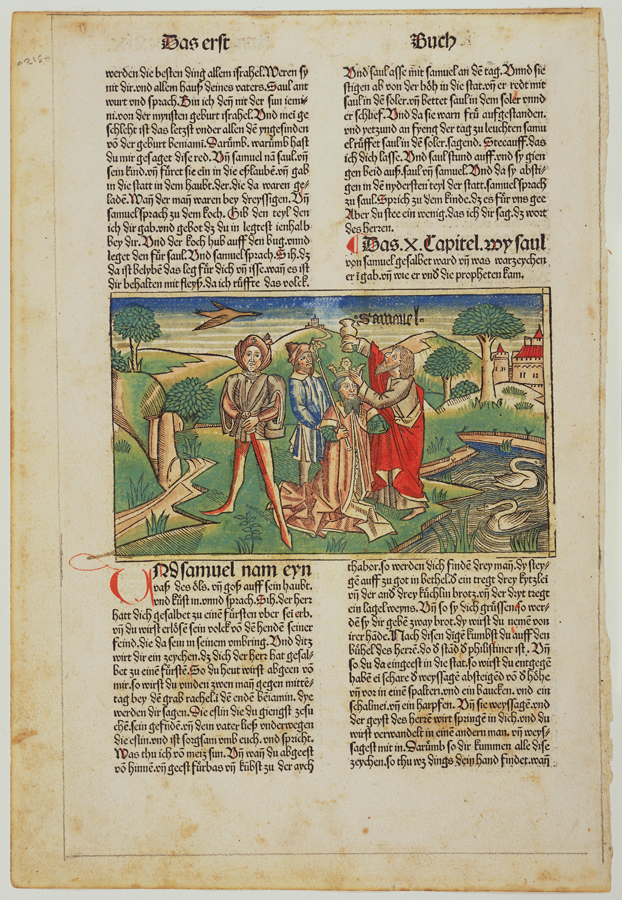 Das erst
Buch
werden die besten ding allem israhel. Weren sy
nit dir. vnd allem hauß deines vaters. Saul ant
wurt vnd sprach. Bin ich deñ nit der sun iemi-
ni. von der mynsten geburt israhel. Vnd mei ge
schlecht ist das letzst vnder allen dē yngesinden
vō der geburt beniami. Darūmb. warūmb hast
du mir gesaget dise red. Vñ samuel nā saul. vñ
sein kind. vñ fūret sie ein in die eßlaubē. vñ gab
in die statt in dem haubt. der. die da waren ge-
ladē. Wañ der mañ waren bey dreyssigen. Vñ
samuel sprach zu dem koch. Gib den teyl den
ich dir gab. vnd gebot dz du in legtest ienhalb
bey dir. Vnd der koch hub auff den bug. vnnd
leget den für saul. Vnd samuel sprach. Sih. dz
da ist belyben das leg für dich vñ isse. wañ es ist
dir behalten mit fleyß. da ich rūffte das volck.
Vnd saul asse mit samuel an dē tag. Vnnd sie
stigen ab von der höh in die stat. vñ er redt mit
saul in dē soler. vñ bettet saul in dem soler vnnd
er schlieff. Vnd da sie warn frū auffgestanden.
vnd yetzund an fyeng der tag zu leuchten samu
el rūffet saul in dē soler. sagend. Stee auff. das
ich dich lasse. Vnd saul stund auff. vnd sy gien
gen beid auß. saul vñ samuel. Vnd da sy absti-
gen in dē nydersten teyl der statt. samuel sprach
zu saul. Sprich zu dem kinde. dz es für vns gee
Aber du stee ein wenig. das ich dir sag. dz wort
des herren.
Das. X. Capitel. wy saul
von samuel gesalbet ward vñ was warzeychen
er i gab. vñ wie er vnd die propheten kam.
samuel
VNd samuel nam eyn
vaß des öls. vñ goß auff sein haubt.
vnd küst in. vnnd sprach. Sih. der herr
hatt dich gesalbet zu einē fürsten vber sei erb.
vñ du wirst erlösē sein volck vō dē hendē seiner
feind. die da sein in seinem vmbring. Vnd ditz
wirt dir ein zeychen. dz dich der herr hat gesal-
bet zu einē fürstē. So du heut wirst abgeen vō
mir. so wirst du vinden zwen mañ gegen mittē-
tag bey dē grab rachel. i dē endē beniamin. dye
werden dir sagen. Die eslin die du giengst zesu
chē. sein gefundē. vñ dein vater ließ vnderwegen
die eslin. vnd ist sorgsam vmb euch. vnd spricht.
Was thu ich vō meiz sun. Vñ wañ du abgeest
vō hinnē. vñ geest fürbas vñ kūbst zu der aych
thabor. so werden dich findē drey mañ. dy stey-
gē auff zu got in bethel. d ein tregt drey kytzlei
vñ der and drey kūchlin brotz. vñ der dryt tregt
ein lagel weyns. Vñ so sy dich grūssen. so wer-
dē sy dir gebē zway brot. dy wirst du nemē von
irer hāde. Nach disen digē kumbst du auff den
būhel des herrē. do d stād d philistiner ist. Vñ
so du da eingeest in die stat. so wirst du entgegē
habē ei schare d weyssagē absteigēd vō d höhe
vñ vor in einē spalterr. vnd ein baucken. vnd ein
schalmei. vñ ein harpfen. Vñ sie weyssagē. vnd
der geyst des herrē wirt springē in dich. vnd du
wirst verwandelt in einē andern man. vñ weys-
sagest mit in. Darūmb so dir kummen alle dise
zeychen. so thu wz dings dein hand findet. wañ